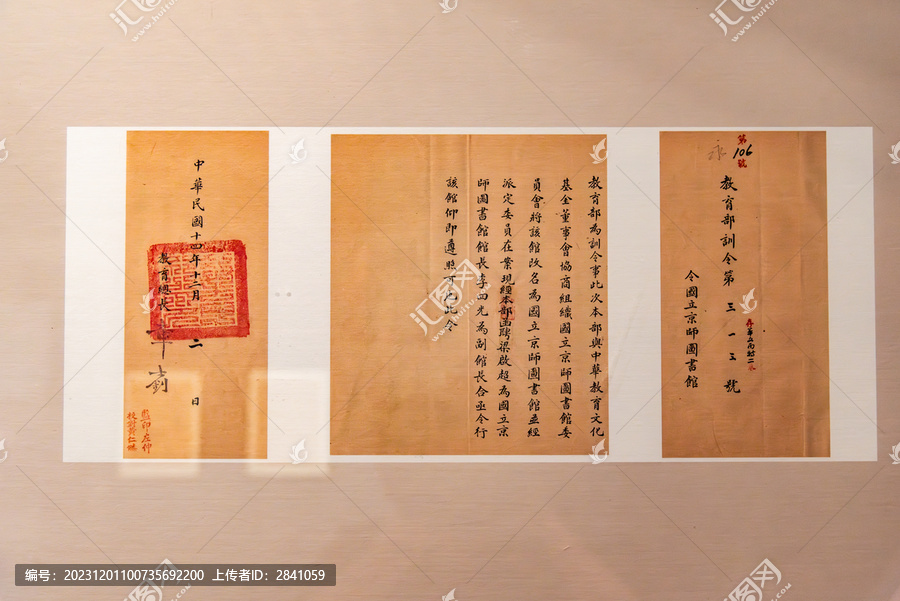 第
106
號
教育部訓令第三一三號
令國立京師圖書館
教育部為訓令事此次本部與中華教育文化
基金董事會協商組織國立京師圖書館委
員會將該館改名為國立京師圖書館並經
派定委員在案現經本部函聘梁啟超為國立京
師圖書館館長李四光為副館長合亟令行
該館仰即遵照可也此令
中華民國十四年十二月二日
教育總長
監印左仲
校對黃仁
编号：20231201100735692200 上传者ID：2841059